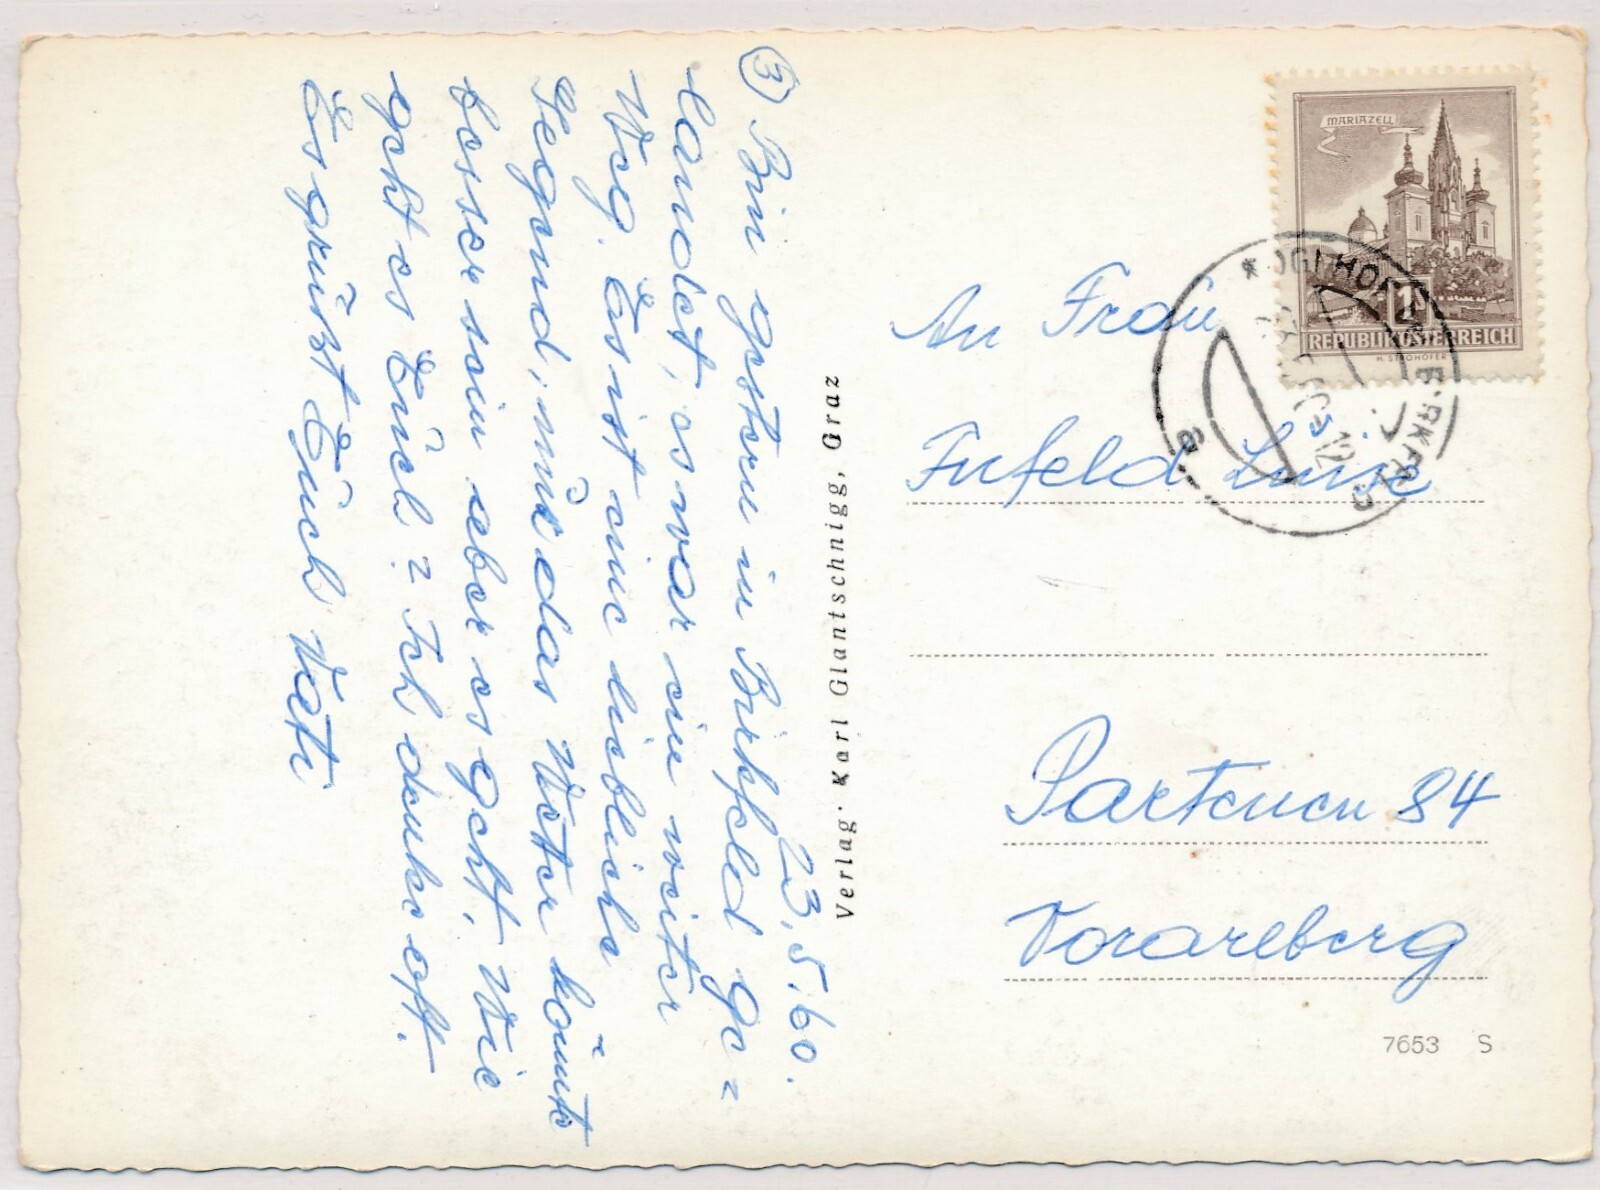 23.5.60.
③ Bin gestern in Birkfeld ge=
landet, es war ein weiter
Weg. Es ist eine liebliche
Gegend, nur das Wetter könnte
besser sein aber es geht. Wie
geht es Euch? Ich denke oft.
Es grüsst Euch Veti
Verlag Karl Glantschnigg, Graz
MARIAZELL
1
REPUBLIK ÖSTERREICH
H. STROHOFER
BIRKFELD
a
An Frau
Fufeld Luise
Partenen 84
Vorarlberg
7653 S